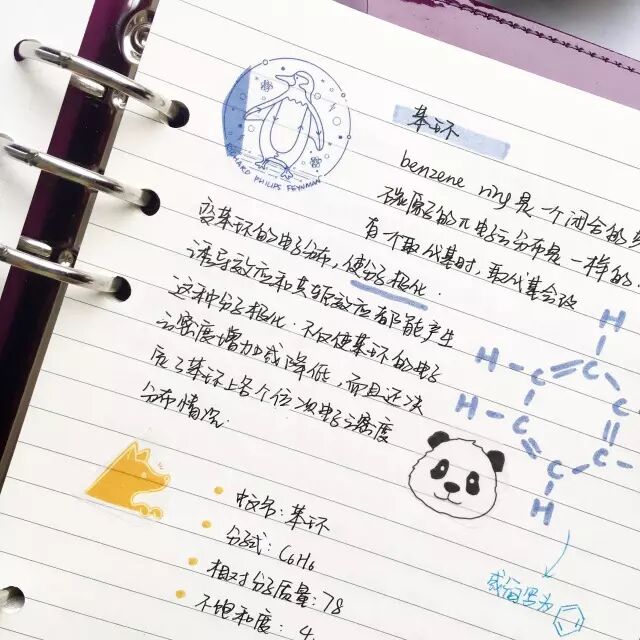 RICHARD PHILIPS FEYNMAN
苯环
benzene ring 是一个闭合的
碳原子的π电子云分布是一样的.
有个取代基时,取代基会改
变苯环的电子分布,使分子极化.
诱导效应和共轭效应都能产生
这种分子极化.不仅使苯环的电子
云密度增加或降低,而且还决
定了苯环上各个位次电子云密度
分布情况.
H
H-C C
H-C C-
C
H
中文名:苯环
分子式:C6H6
相对分子质量:78
不饱和度:4.
或简写为